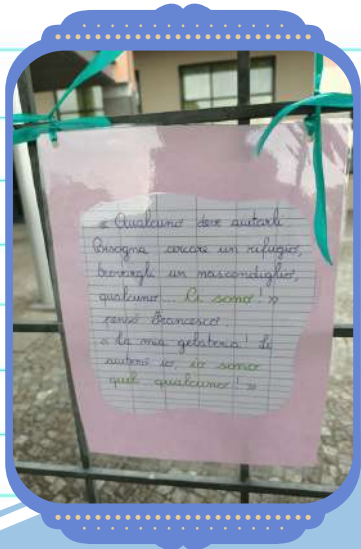 « Qualcuno deve aiutarli
Bisogna cercare un rifugio,
trovargli un nascondiglio,
qualcuno... Ci sono! »
pensò Francesco.
« La mia gelateria! Li
aiuterò io, io sono
quel qualcuno! »